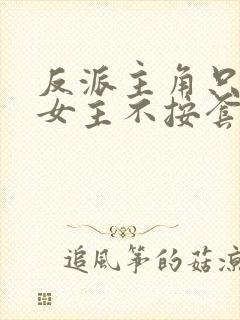 反派主角只
女主不按套
追風筝的菇凉